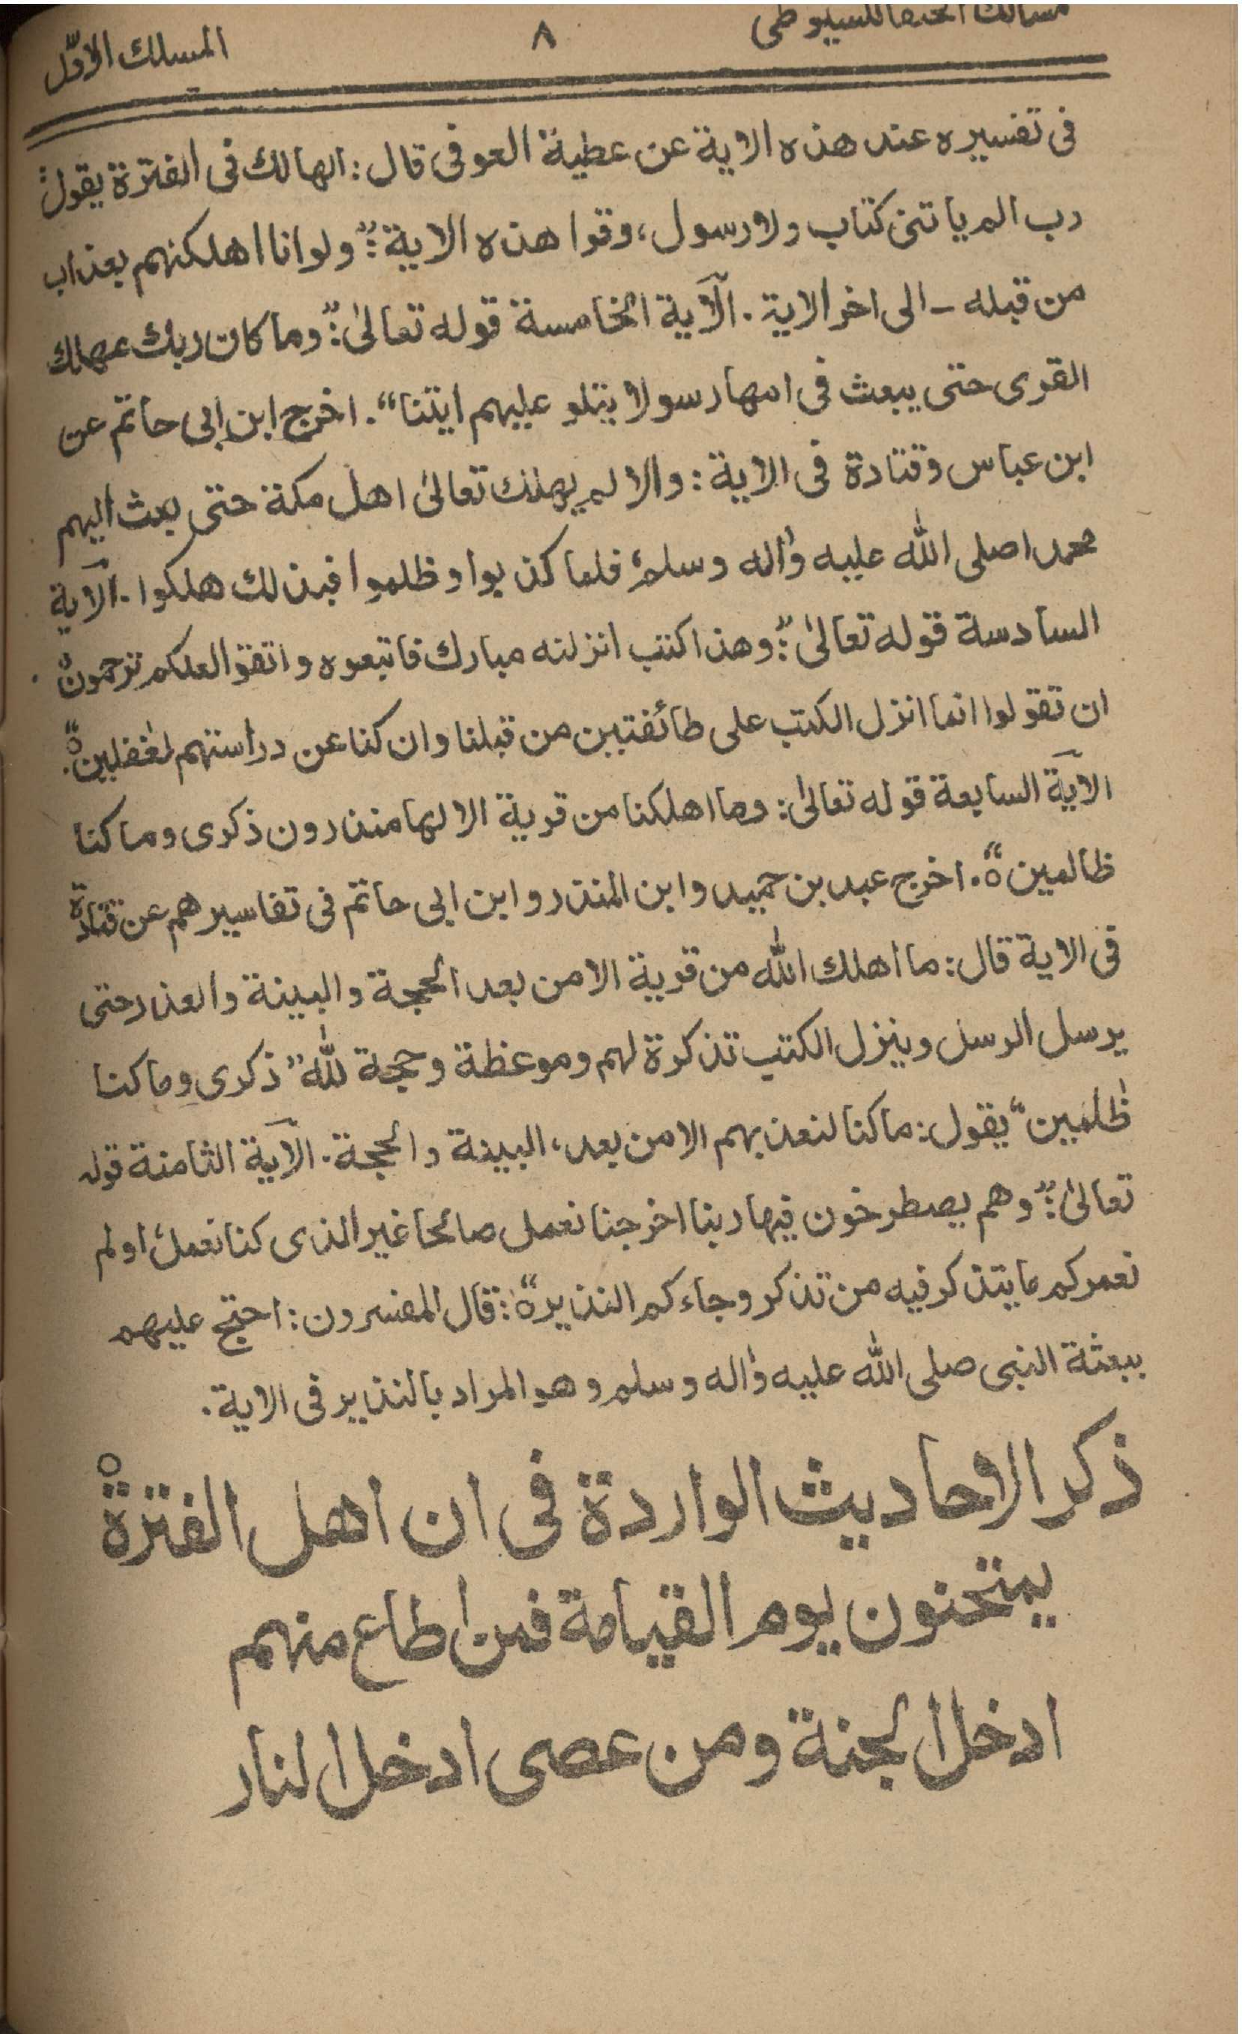 مسالك الحنفا للسيوطى ٨ المسلك الاوّل
فى تفسيره عند هذه الاية عن عطية العوفى قال: الهالك فى الفترة يقول:
رب الم ياتنى كتاب ولا رسول، وقرا هذه الاية:" ولو انا اهلكنهم بعذاب
من قبله - الى اخر الاية. الآية الخامسة قوله تعالىٰ:" وما كان ربك مهلك
القرى حتى يبعث فى امها رسولا يتلو عليهم ايتنا". اخرج ابن ابى حاتم عن
ابن عباس وقتادة فى الاية: والا لم يهلك تعالىٰ اهل مكة حتى بعث اليهم
محمدا صلى الله عليه واٰله وسلم، فلما كذبوا وظلموا فبذلك هلكوا. الآية
السادسة قوله تعالىٰ:" وهذا كتب انزلنه مبارك فاتبعوه واتقوا لعلكم ترحمون
ان تقولوا انما انزل الكتب على طائفتين من قبلنا وان كنا عن دراستهم لغفلين ه".
الآية السابعة قوله تعالىٰ: وما اهلكنا من قرية الا لها منذرون ذكرى وما كنا
ظالمين ه". اخرج عبد بن حميد وابن المنذر وابن ابى حاتم فى تفاسيرهم عن قتادة
فى الاية قال: ما اهلك الله من قرية الا من بعد الحجة والبينة والعذر حتى
يرسل الرسل وينزل الكتب تذكرة لهم وموعظة وحجة لله" ذكرى وما كنا
ظٰلمين" يقول: ما كنا لنعذبهم الا من بعد، البينة والحجة. الآية الثامنة قوله
تعالىٰ:" وهم يصطرخون فيها ربنا اخرجنا نعمل صالحا غير الذى كنا نعمل، اولم
نعمركم ما يتذكر فيه من تذكر وجاءكم النذير ه": قال المفسرون: احتج عليهم
ببعثة النبى صلى الله عليه واٰله وسلم وهو المراد بالنذير فى الاية.
ذكر الاحاديث الواردة فى ان اهل الفترة
يمتحنون يوم القيامة فمن اطاع منهم
ادخل الجنة ومن عصى ادخل النار